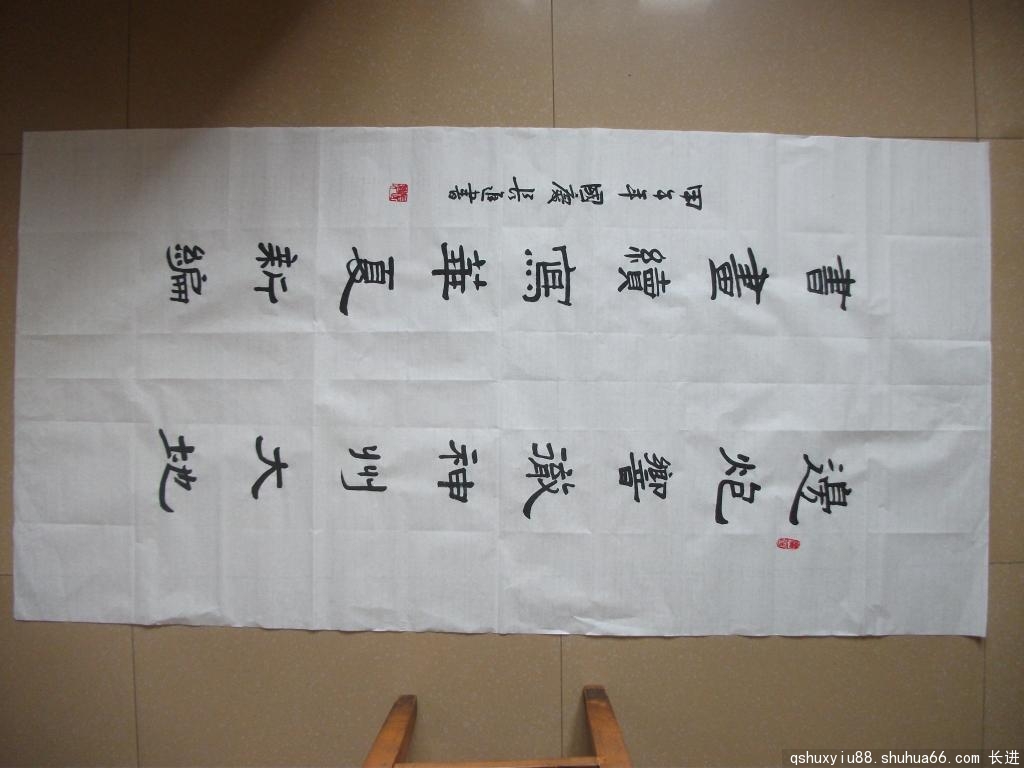 邊炮響徹神州大地
書畫續寫華夏新編
甲午年國慶长進書
qshuxyiu88.shuhua66.com 长进